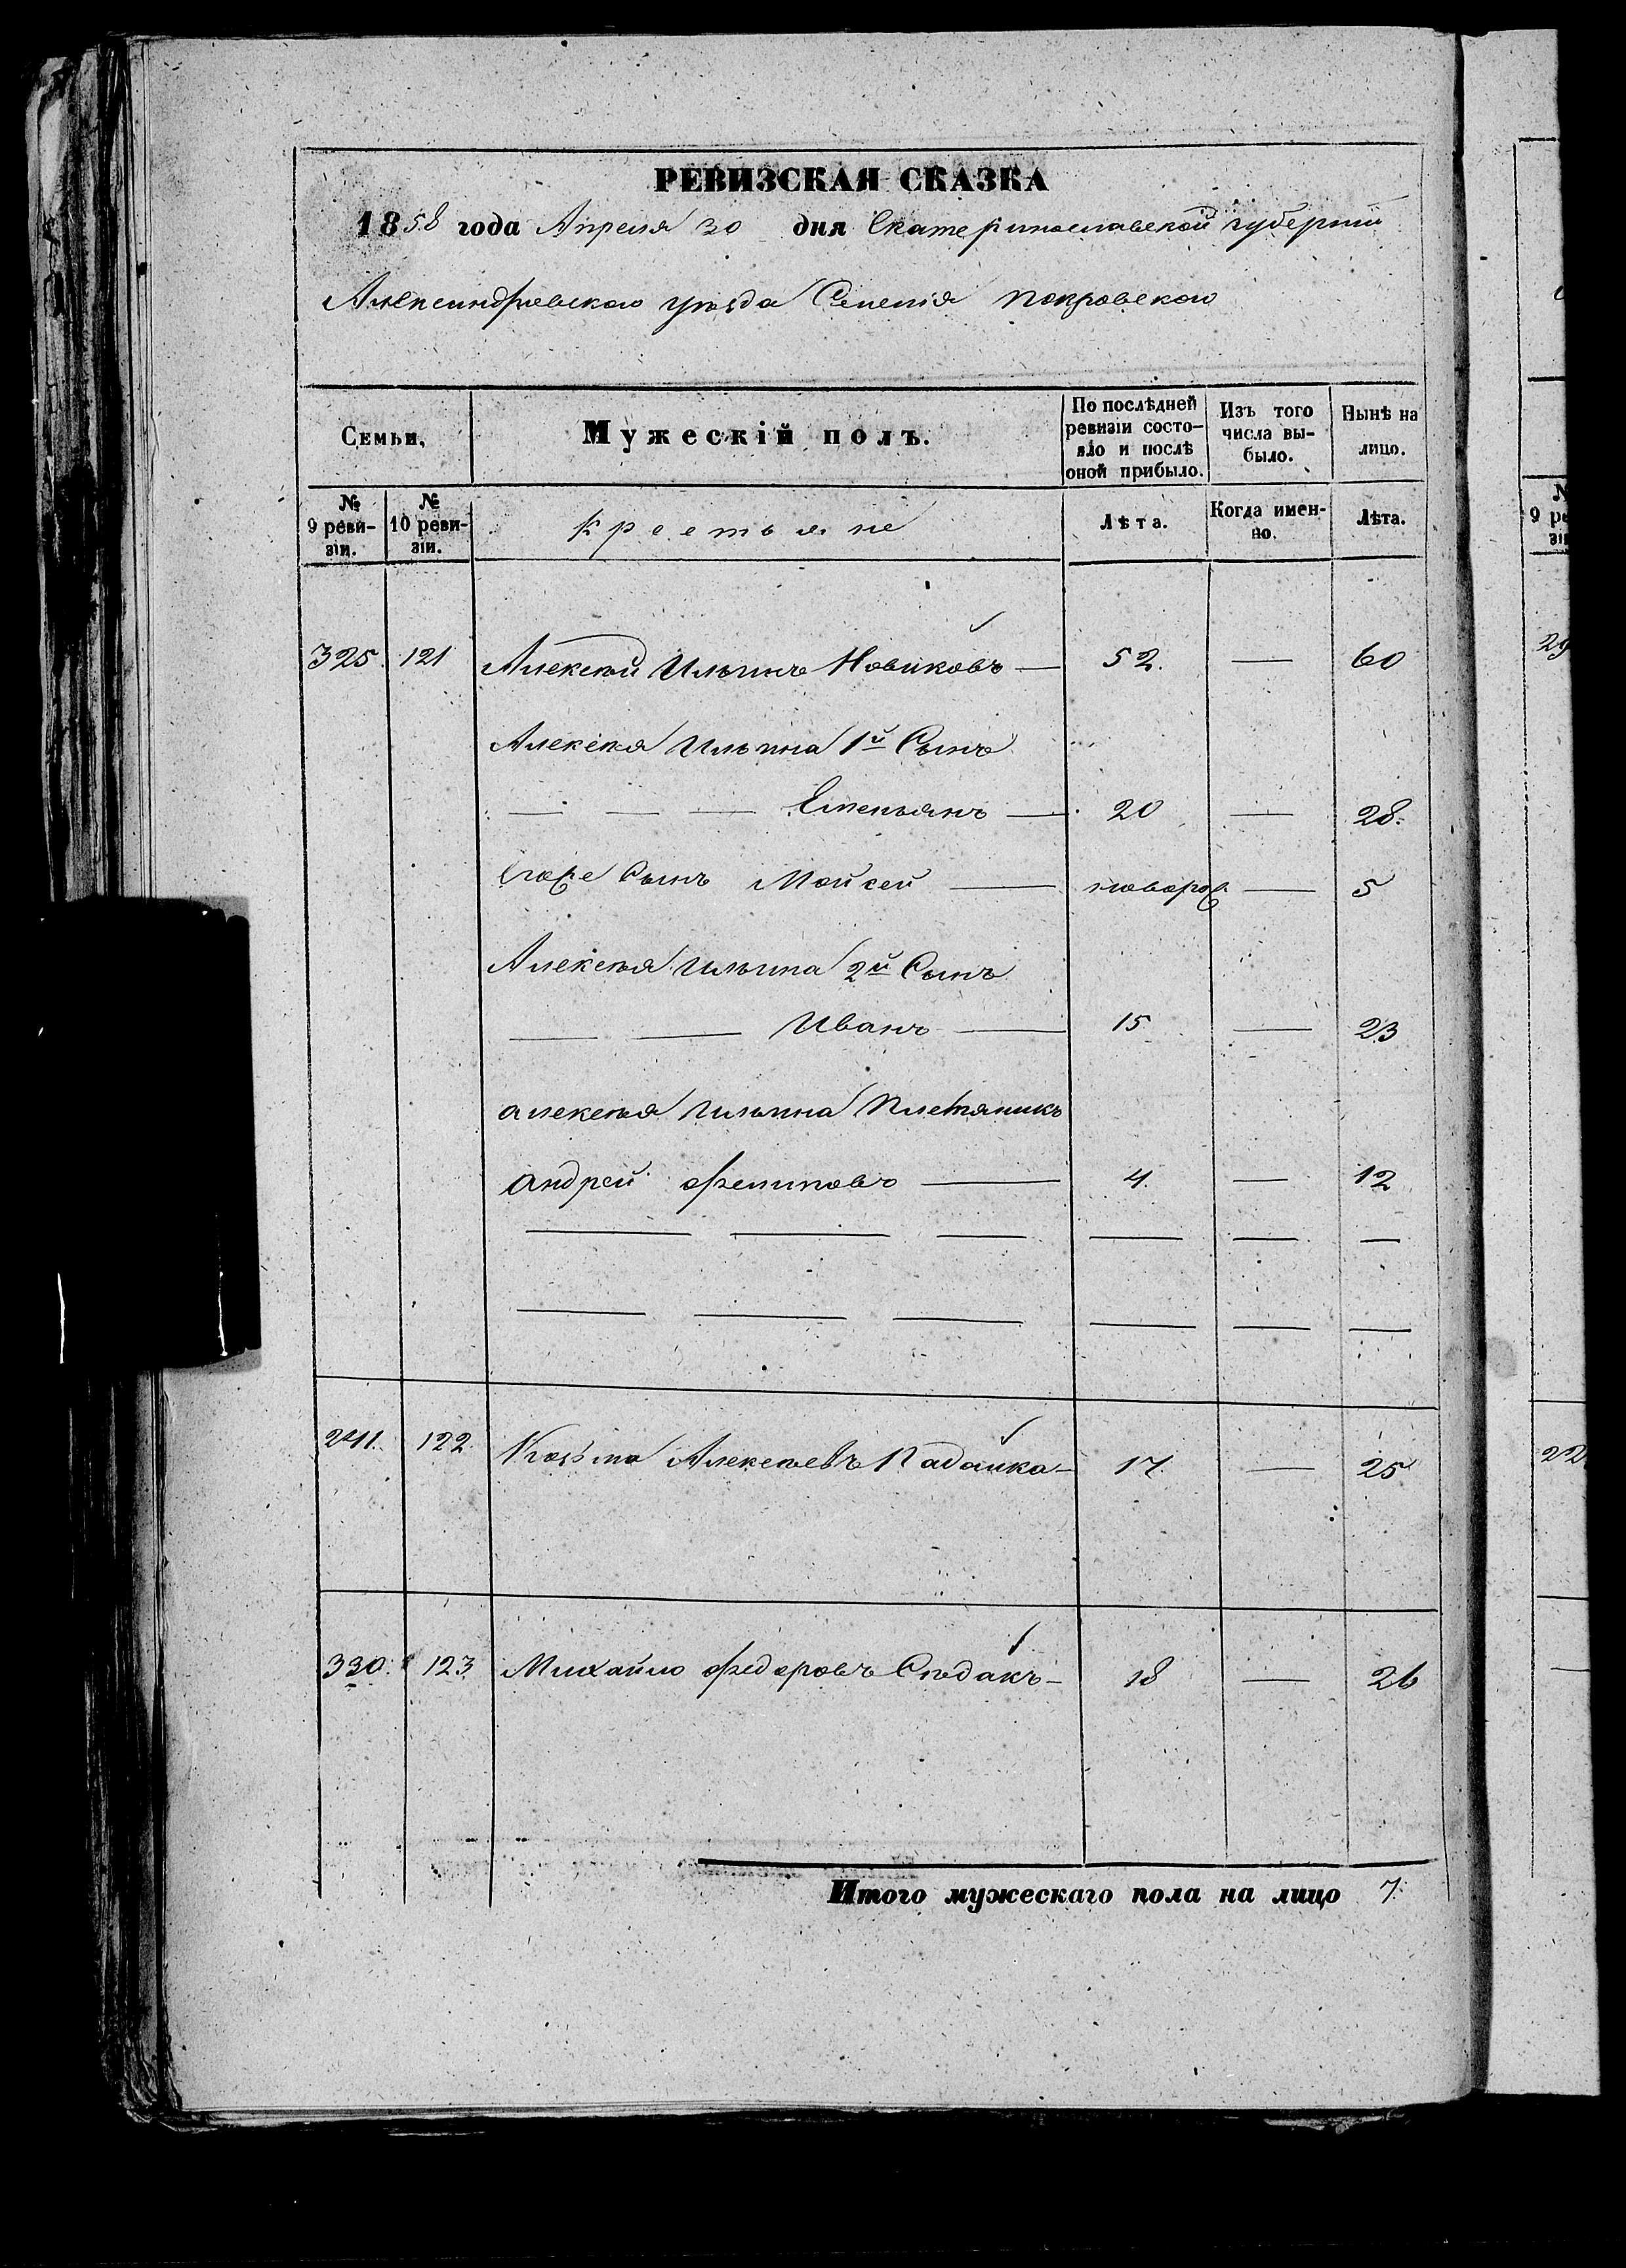 РЕВИЗСКАЯ СКАЗКА
1858 года Апреля 30 дня Екатеринославской губернии
Александровскаго уѣзда Селенія Покровскаго
Семьи. Мужескій полъ. По послѣдней ревизіи состояло и послѣ оной прибыло. Изъ того числа выбыло. Нынѣ на лицо.
№ 9 ревизіи. № 10 ревизіи. Крестьяне Лѣта. Когда именно. Лѣта.
325. 121 Алексѣй Ильинъ Новиковъ — 52. — 60
Алексѣя Ильина 1й Сынъ
— — — Емельянъ — 20 — 28.
Егоже Сынъ Мойсей — новорож — 5
Алексѣя Ильина 2й Сынъ
— — Иванъ — 15 — 23
Алексѣя Ильина Племяникъ
Андрей Филиповъ — 4. — 12
241. 122. Козьма Алексѣевъ — 17. — 25
330. 123 Михайло Федоровъ Сѣдакъ — 18 — 26
Итого мужескаго пола на лицо 7.
29
9
22